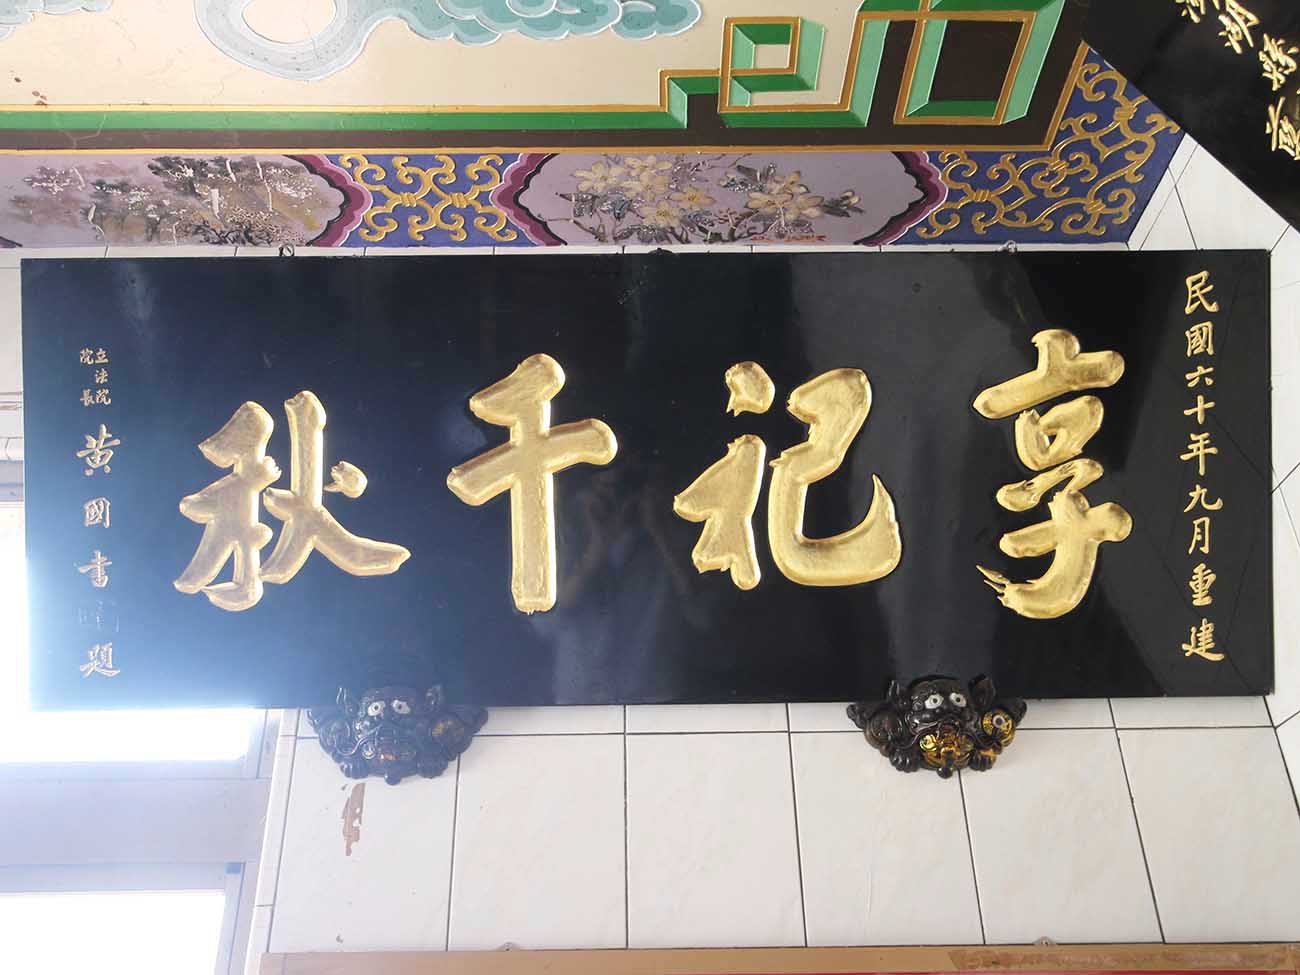 民國六十年九月重建
享祀千秋
立法院
院長
黃國書
題